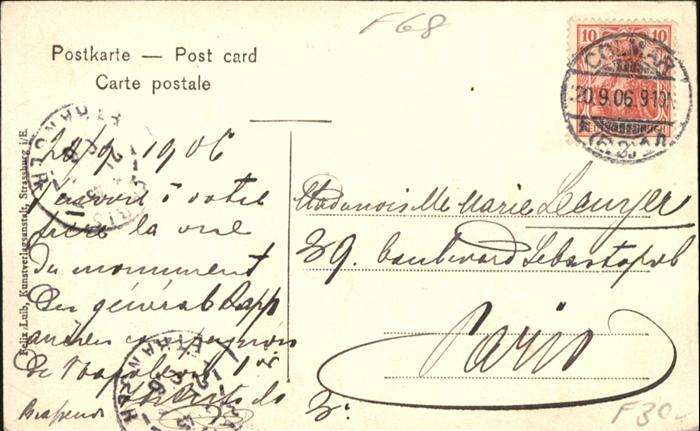 F68
Postkarte — Post card
Carte postale
10 10
COLMAR
20.9.06. 9-10
Felix Luib, Kunstverlagsanstalt, Strassburg i/E.
20/9 1906
J'envoie à votre
père la vue
du monument
du général Rapp
ancien compagnon
de Napoléon 1er
Mademoiselle Marie
39. boulevard Sebastopol
Paris
PARIS
ETRANGER
ETRANGER
F30-